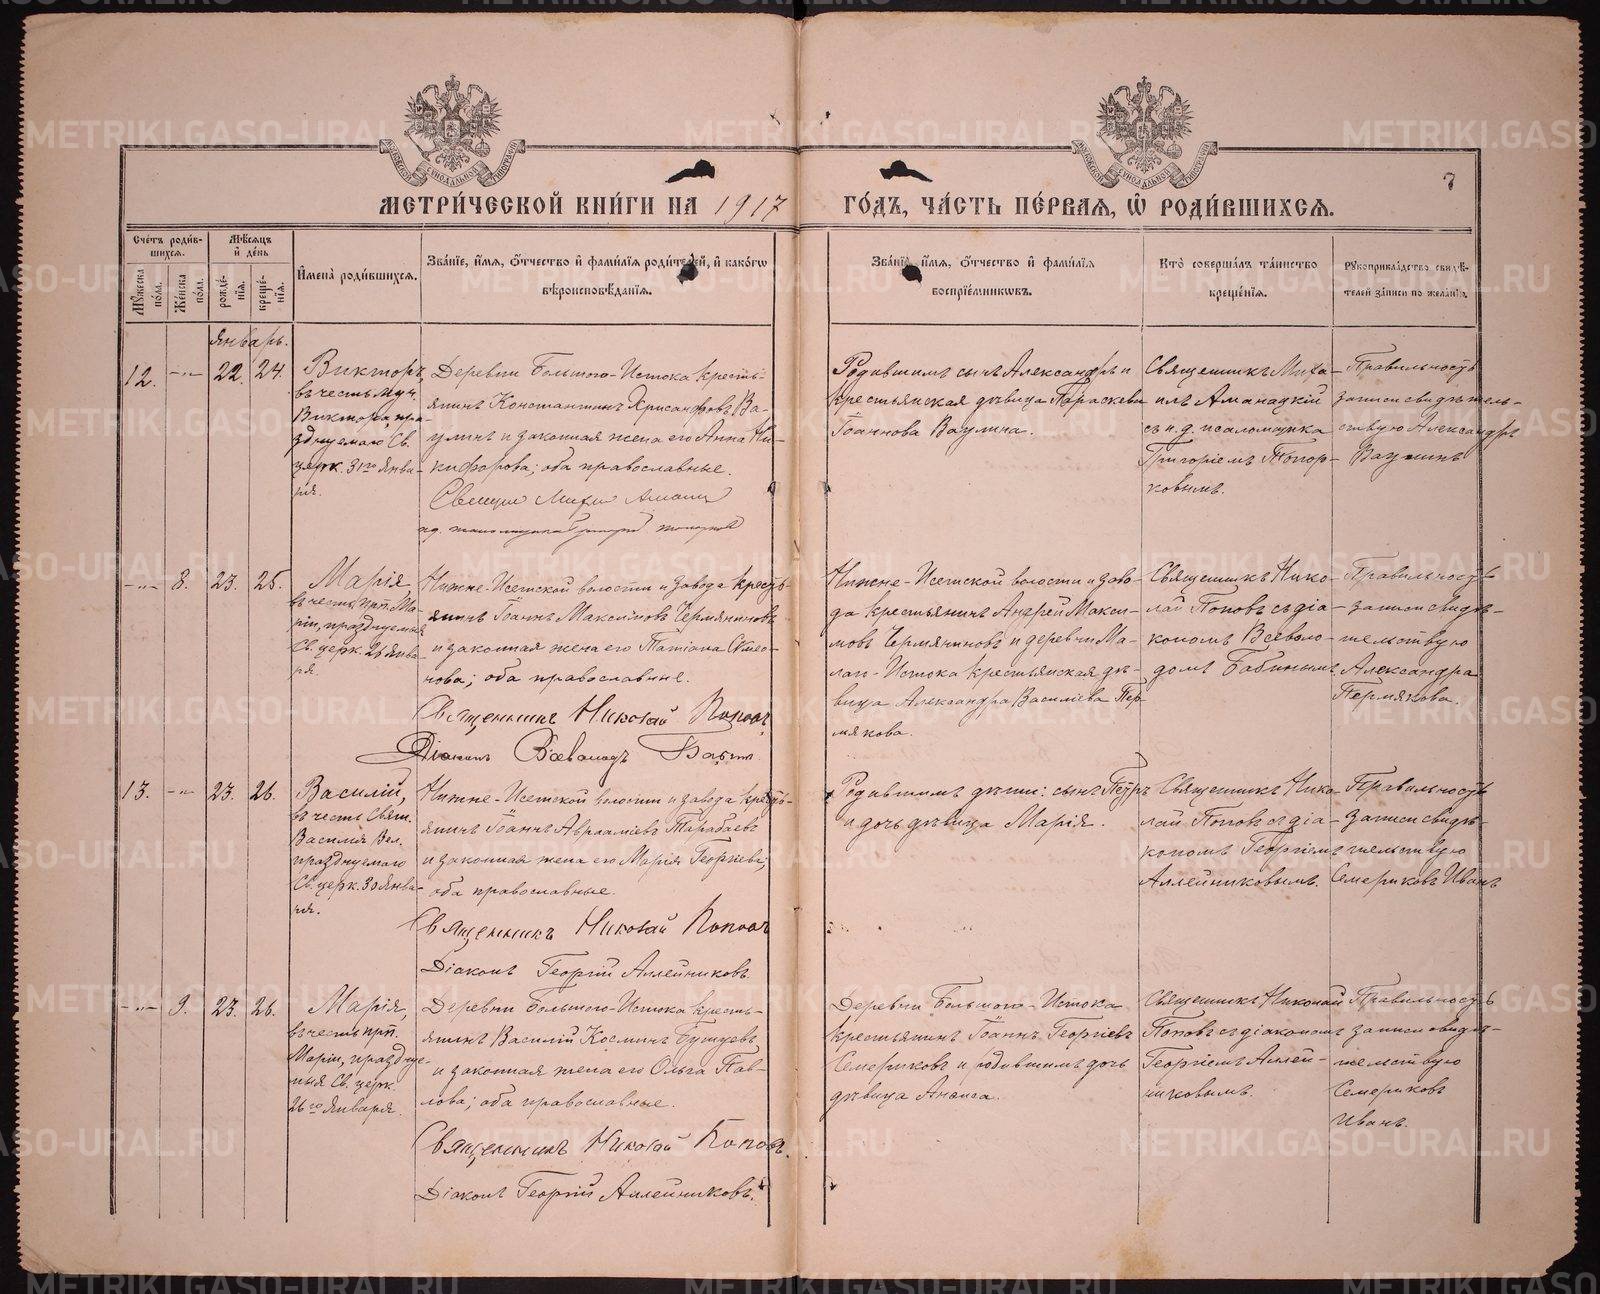 МЕТРИ́ЧЕСКОЙ КНИ́ГИ НА 1917 ГО́ДЪ, ЧА́СТЬ ПЕ́РВАЯ, Ѡ҆ РОДИ́ВШИХСЯ.
7
Счетъ роди́вшихся.
Мѣ́сяцъ и҆ де́нь
Мꙋ́жеска по́ла.
Же́нска по́ла.
рожде́нїя.
креще́нїя.
И҆мена̀ роди́вшихся.
Зва́нїе, и҆́мя, ѻ҆́тчество и҆ фами́лїя роди́телей, и҆ како́гѡ
вѣроисповѣ́данїя.
Зва́нїе, и҆́мя, ѻ҆́тчество и҆ фами́лїя
воспрїе́мникѡвъ.
Кто̀ соверша́лъ та́инство
креще́нїя.
Рꙋкоприкла́дство свидѣ́-
телей за́писи по жела́нїю.
Январь.
12.
-"-
22.
24.
Викторъ,
въ честь муч.
Виктора, пра-
зднуемаго Св.
церк. 31го Янва-
ря.
Деревни Большого-Истока кресть-
янинъ Константинъ Хрисанфовъ Ва-
улинъ и законная жена его Анна Ни-
кифорова; оба православные.
Родившимъ сынъ Александръ и
крестьянская дѣвица Параскева
Іоаннова Ваулина.
Священникъ Миха-
илъ Аманацкій
съ и.д. псаломщика
Григоріемъ Топор-
ковымъ.
Правильность
записи свидѣтель-
ствую Александръ
Ваулинъ
-"-
8.
23.
25.
Марія,
въ честь прп. Ма-
ріи, празднуемыя
Св. церк. 26 Янва-
ря.
Нижне-Исетской волости и завода кресть-
янинъ Іоаннъ Максимовъ Чермяниновъ
и законная жена его Татіана Симео-
нова; оба православные.
Священникъ Николай Поповъ
Діаконъ Всеволодъ Бабинъ
Нижне-Исетской волости и заво-
да крестьянинъ Андрей Макси-
мовъ Чермяниновъ и деревни Ма-
лаго-Истока крестьянская дѣ-
вица Александра Василіева Пер-
мякова.
Священникъ Нико-
лай Поповъ съ діа-
кономъ Всеволо-
домъ Бабинымъ
Правильность
записи свидѣ-
тельствую
Александра
Пермякова.
13.
-"-
23.
26.
Василій,
въ честь Свят.
Василія Вел.
празднуемаго
Св. церк. 30 Янва-
ря.
Нижне-Исетской волости и завода кресть-
янинъ Іоаннъ Авраамiевъ Тарабаевъ
и законная жена его Марія Георгіева;
оба православные.
Священникъ Николай Поповъ
Діаконъ Георгій Аллейниковъ.
Родившимъ дѣти: сынъ Петръ
и дочь дѣвица Марія.
Священникъ Нико-
лай Поповъ съ діа-
кономъ Георгіемъ
Аллейниковымъ.
Правильность
записи свидѣ-
тельствую
Семериковъ Иванъ
-"-
9.
23.
26.
Марія,
въ честь прп.
Маріи, праздну-
емыя Св. церк.
26го Января.
Деревни Большого-Истока кресть-
янинъ Василій Косминъ Бушуевъ
и законная жена его Ольга Пав-
лова; оба православные.
Священникъ Николай Поповъ.
Діаконъ Георгій Аллейниковъ.
Деревни Большого-Истока
крестьянинъ Іоаннъ Георгіевъ
Семериковъ и родившимъ дочь
дѣвица Анисія.
Священникъ Николай
Поповъ съ діакономъ
Георгіемъ Аллей-
никовымъ.
Правильность
записи свидѣ-
тельствую
Семериковъ
Иванъ.
METRIKI.GASO-URAL.RU